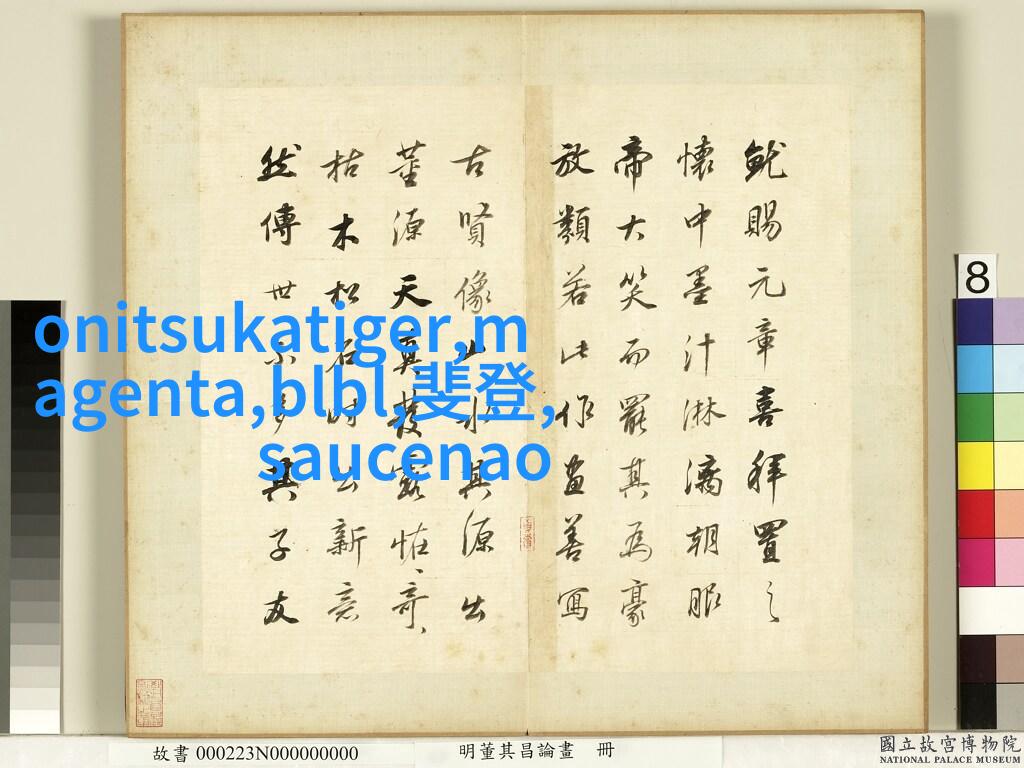 就賜元章喜拜置之
懷中墨汁淋漓朝服
帝大笑而罷其為豪
放類若此作畫善寫
古賢像山水其源出
董源天真發露怪、奇、
枯木松石時出新意
然傳世不多其子友
onitsukatiger,m
agenta,blbl,斐登,
saucenao
8
故書 000223N000000000
明董其昌論畫 冊
國立故宮博物院
NATIONAL PALACE MUSEUM